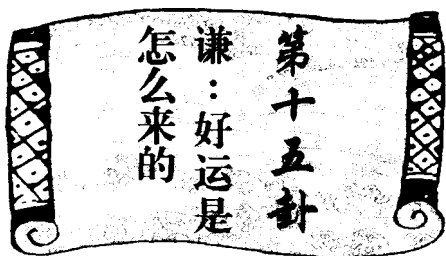 第十五卦
谦：好运是
怎么来的